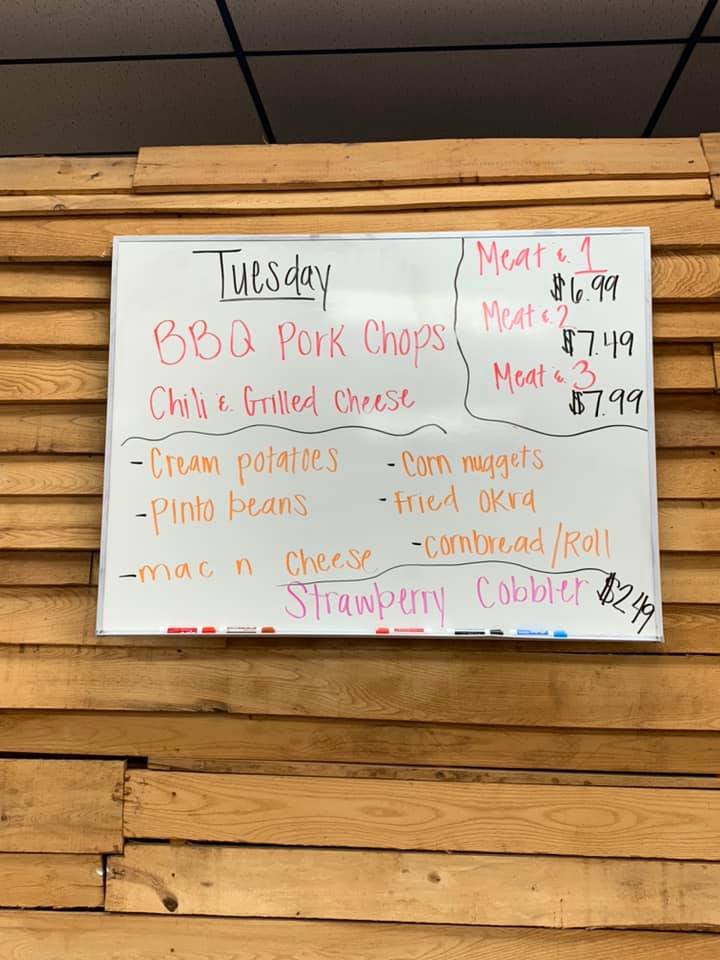 Tuesday
BBQ Pork Chops
Chili & Grilled Cheese
Meat & 1
$6.99
Meat & 2
$7.49
Meat & 3
$7.99
- Cream potatoes
- Pinto beans
- mac n cheese
- Corn nuggets
- Fried Okra
- Cornbread/Roll
Strawberry Cobbler $2.49